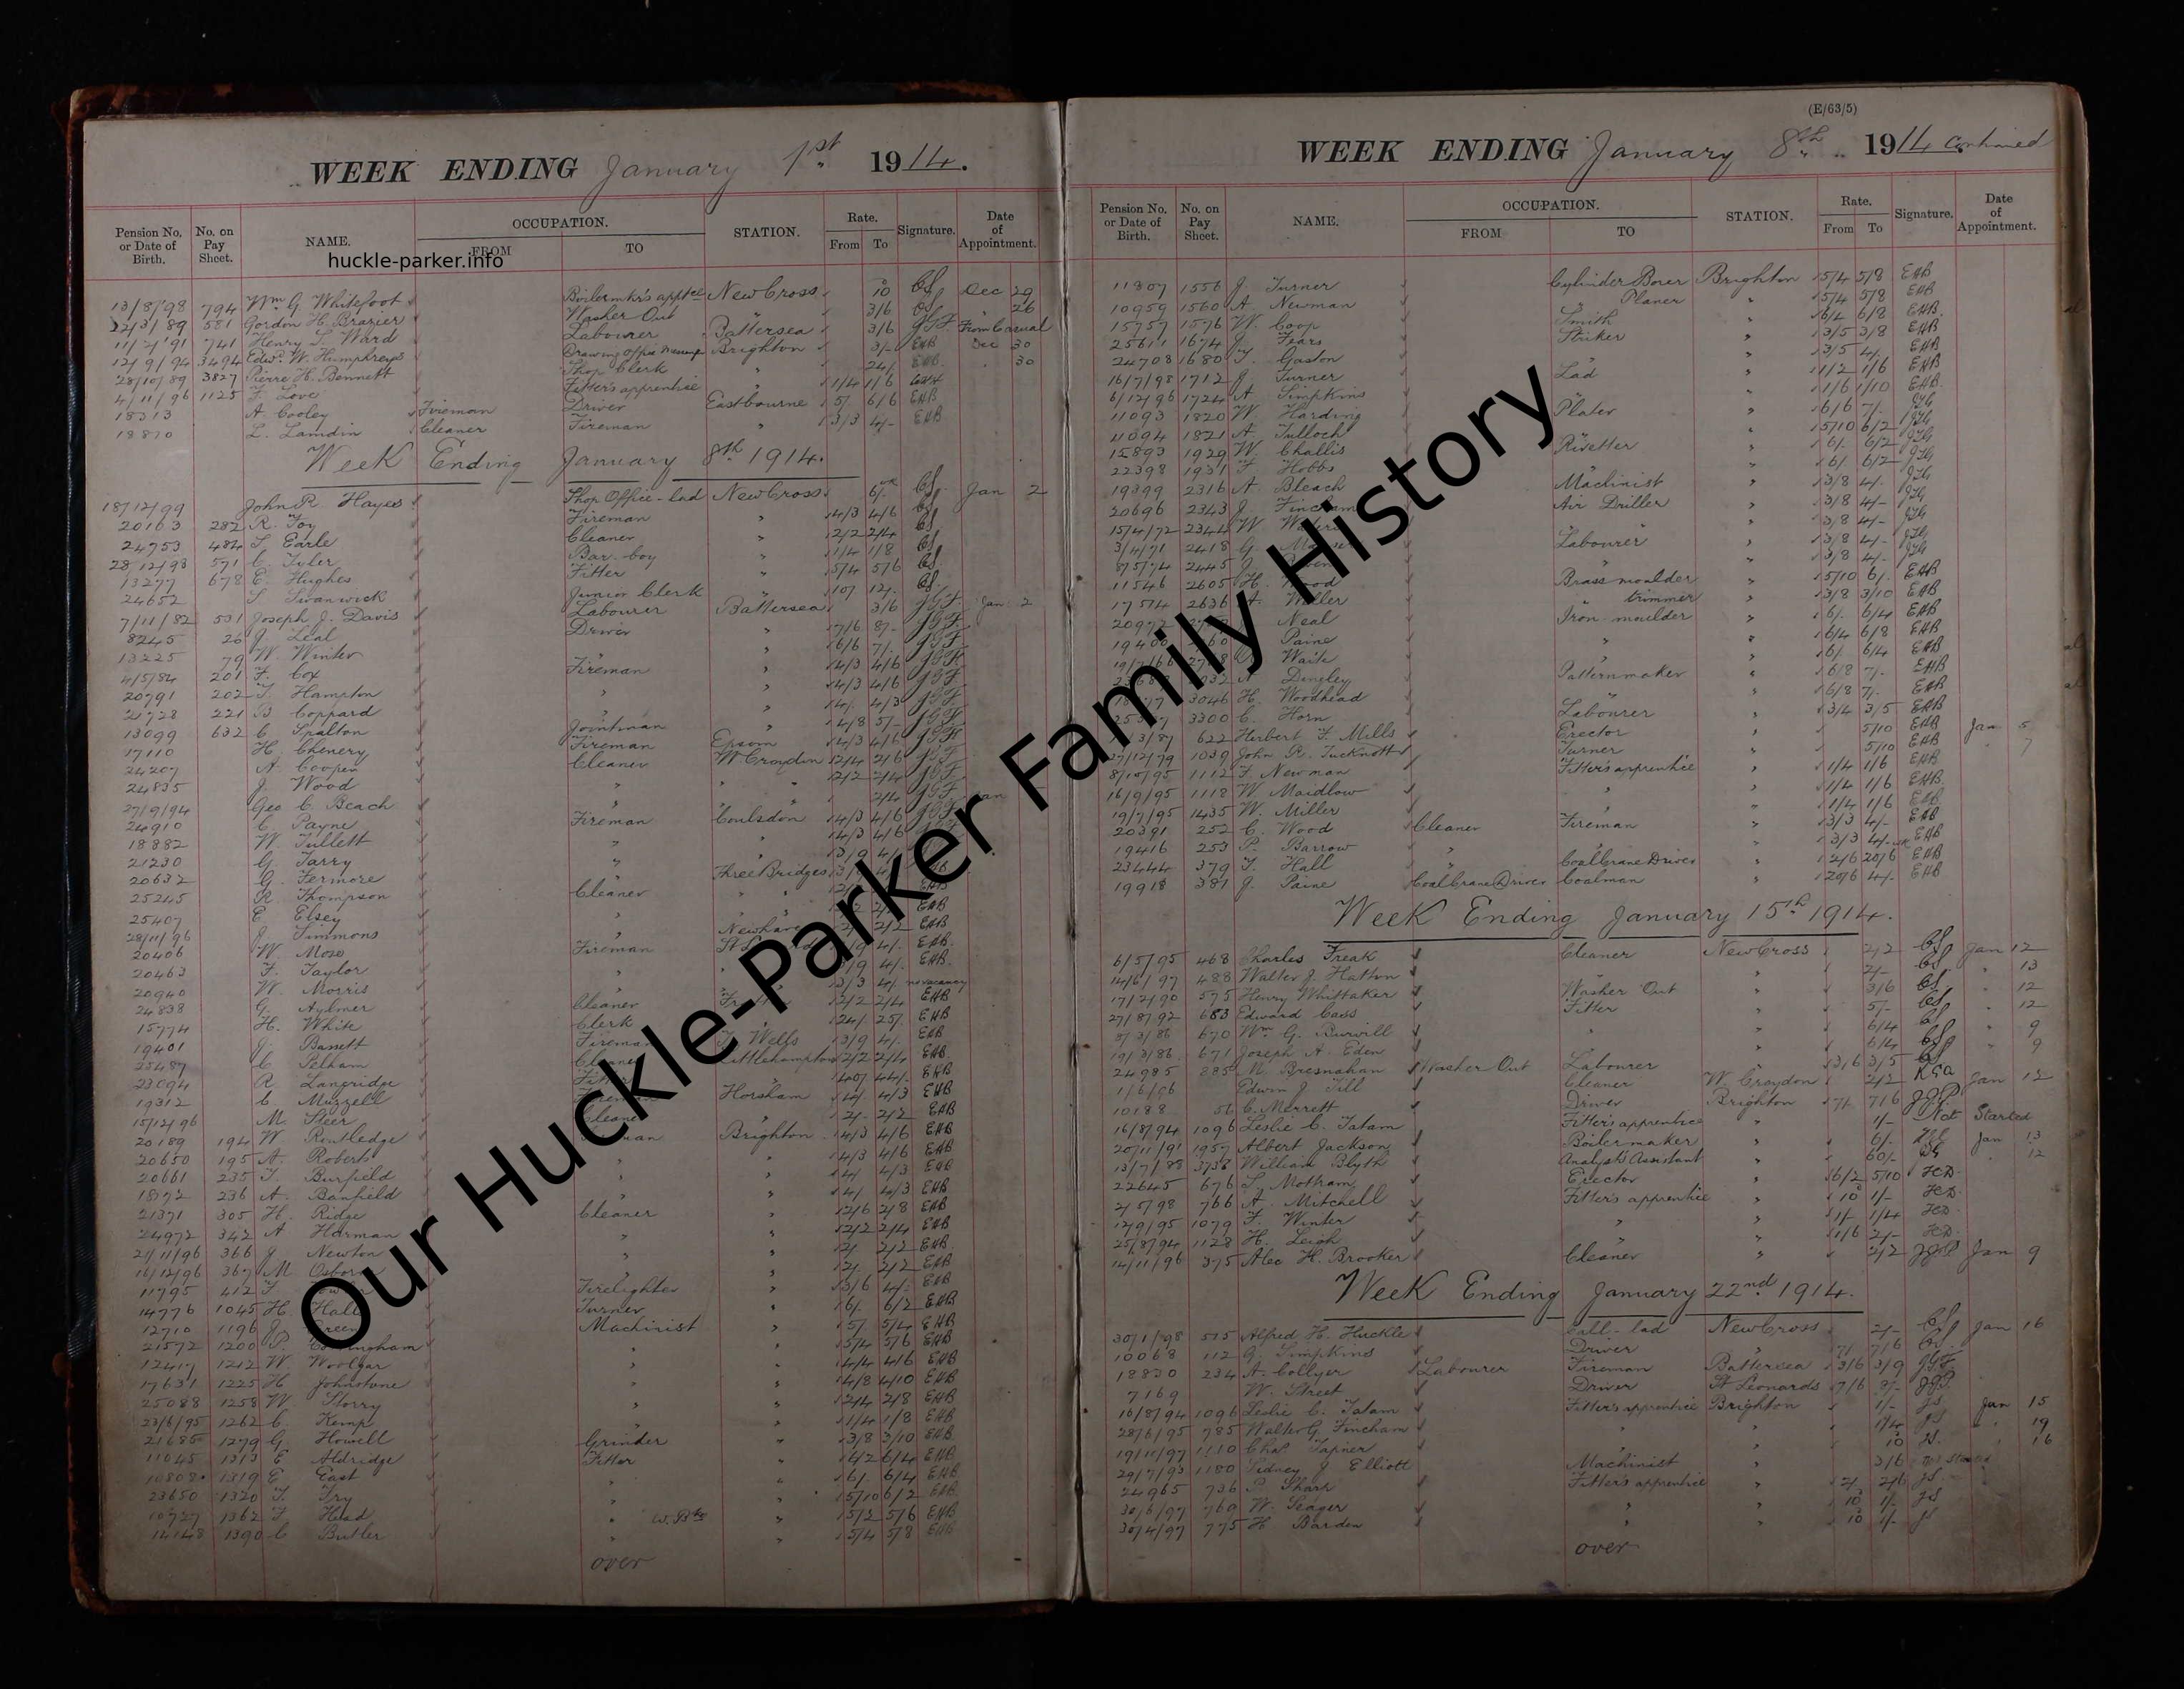 WEEK ENDING January 1st 1914.
Pension No. or Date of Birth. No. on Pay Sheet. NAME. OCCUPATION. FROM TO STATION. Rate. From To Signature. Date of Appointment.
huckle-parker.info
13/8/98 794 Wm G. Whitefoot Boilermkr's apptce New Cross 10 CS Dec 29
22/3/89 581 Gordon H. Brazier Washer Out " 3/6 CS " 26
11/7/91 741 Henry L. Ward Labourer Battersea 3/6 JGF From Casual
12/9/94 3494 Edwd. W. Humphreys Drawing Office Messngr Brighton 3/- EHB Dec 30
28/10/89 3827 Pierre H. Bennett Shop Clerk " 24/- EHB 30
4/11/96 1125 F. Love Fitter's apprentice " 1/4 1/6
18313 A. Cooley Fireman Driver Eastbourne 5/- 6/6 EHB
18870 L. Lamdin Cleaner Fireman " 3/3 4/- EHB
Week Ending January 8th 1914.
18/12/99 John R. Hayes Shop Office-lad New Cross 6/- wk CS Jan 2
20163 282 R. Foy Fireman " 4/3 4/6 CS
24753 484 L. Earle Cleaner " 2/2 2/4 CS
28/12/98 571 C. Tyler Bar boy " 1/4 1/8 CS
13277 678 E. Hughes Fitter " 5/4 5/6 CS
24652 S. Swanwick Junior Clerk " 10/- 12/- CS
7/11/82 531 Joseph J. Davis Labourer Battersea 3/6 JGF Jan 2
8245 26 J. Leal Driver " 7/6 8/- JGF
13225 79 W. Winter " " 6/6 7/- JGF
4/5/84 201 F. Cox Fireman " 4/3 4/6 JGF
20791 202 T. Hampton " " 4/3 4/6 JGF
21728 221 B. Coppard " " 4/- 4/3 JGF
13099 632 C. Spalton Jointman " 4/8 5/- JGF
17110 H. Chenery Fireman Epsom 4/3 4/6 JGF
24207 A. Cooper Cleaner W Croydon 2/4 2/6 JGF
24835 J. Wood " " 2/2 2/4 JGF
27/9/94 Geo C. Beach " " 2/4 JGF Jan
24910 C. Payne Fireman Coulsdon 4/3 4/6 JGF
18882 W. Tullett " " 4/3 4/6
21230 G. Tarry " " 3/9 4/-
20632 G. Fermore " Three Bridges
25245 R. Thompson Cleaner " EHB
25407 E. Elsey " EHB
28/11/96 J. Simmons " Newhaven 2/2 EHB
20406 W. Mose Fireman 4/- EHB
20463 F. Taylor " 4/- EHB
20940 W. Morris " 3/3 4/- no vacancy
24838 G. Aylmer Cleaner 2/2 2/4 EHB
15774 H. White Clerk 24/- 25/- EHB
19401 J. Bassett Fireman T. Wells 3/9 4/- EHB
23487 C. Pelham Cleaner Littlehampton 2/2 2/4 EHB
23094 R. Langridge Fitter " EHB
19312 C. Muzzell Horsham 4/- 4/3 EHB
15/12/96 M. Steer Cleaner " 2/- 2/2 EHB
20189 194 W. Routledge Brighton 4/3 4/6 EHB
20650 195 A. Roberts " 4/3 4/6 EHB
20661 235 T. Burfield " 4/- 4/3 EHB
18172 236 A. Banfield " 4/- 4/3 EHB
21371 305 H. Ridge Cleaner " 2/6 2/8 EHB
24972 342 A. Harman " " 2/2 2/4 EHB
21/11/96 366 J. Newton " " 2/- 2/2 EHB
16/12/96 367 M. Osborn " " 2/- 2/2 EHB
11795 412 T. Firelighter " 3/6 4/- EHB
14776 1045 H. Hall Turner " 6/- 6/2 EHB
12710 1196 J. Green Machinist " 5/- 5/4 EHB
21572 1200 P. " " 5/4 5/6 EHB
12417 1212 W. Woolgar " " 4/4 4/6 EHB
17631 1225 H. Johnstone " " 4/8 4/10 EHB
25088 1258 W. Storry " " 2/4 2/8 EHB
23/6/95 1262 C. Kemp " " 1/4 1/8 EHB
21685 1279 G. Howell Grinder " 3/8 3/10 EHB
11045 1313 E. Aldridge Fitter " 6/2 6/4 EHB
10808 1319 E. East " " 6/- 6/4 EHB
23650 1320 T. Try " " 5/10 6/2 EHB
10727 1362 F. Head " " 5/2 5/6 EHB
14148 1390 C. Butler " " 5/4 5/8 EHB
over
(E/63/5)
WEEK ENDING January 8th 1914 continued
Pension No. or Date of Birth. No. on Pay Sheet. NAME. OCCUPATION. FROM TO STATION. Rate. From To Signature. Date of Appointment.
11807 1556 J. Turner Cylinder Borer Brighton 5/4 5/8 EHB
10959 1560 A. Newman Planer " 5/4 5/8 EHB
15757 1576 W. Coop Smith " 6/4 6/8 EHB
25611 1674 J. Fears Striker " 3/5 3/8 EHB
24708 1680 T. Gaston " " 3/5 4/- EHB
16/7/98 1712 J. Turner Lad " 1/2 1/6 EHB
6/12/96 1724 A. Simpkins " " 1/6 1/10 EHB
11093 1820 W. Harding Plater " 6/6 7/- JLG
11094 1821 A. Tulloch " " 5/10 6/2 JLG
15893 1929 W. Challis Rivetter " 6/- 6/2 JLG
22398 1931 F. Hobbs " " 6/- 6/2 JLG
19399 2316 A. Bleach Machinist " 3/8 4/- JLG
20696 2343 J. Fincham Air Driller " 3/8 4/- JLG
15/4/72 2344 W. " " 3/8 4/- JLG
3/4/71 2418 G. Labourer " 3/8 4/- JLG
8/5/74 2445 J. " " 3/8 4/- JLG
11546 2605 H. Wood Brass moulder " 5/10 6/- EHB
17514 2636 A. Weller trimmer " 3/8 3/10 EHB
Neal Iron moulder " 6/- 6/4 EHB
Paine " " 6/4 6/8 EHB
19/7/66 Waite " " 6/- 6/4 EHB
Dingley Patternmaker " 6/8 7/- EHB
3046 H. Woodhead " " 6/8 7/- EHB
3300 C. Horn Labourer " 3/4 3/5 EHB
622 Herbert F. Mills Erector " 5/10 EHB Jan 5
27/12/79 1039 John R. Tucknott Turner " 5/10 EHB " 7
8/10/95 1112 F. Newman Fitter's apprentice " 1/4 1/6 EHB
16/9/95 1118 W. Maidlow " " 1/4 1/6 EHB
19/7/95 1435 W. Miller " " 1/4 1/6 EHB
20391 252 C. Wood Cleaner Fireman " 3/3 4/- EHB
19416 253 P. Barrow " " " 3/3 4/- EHB
23444 379 T. Hall " Coal Crane Driver " 2/6 20/6 EHB
19918 381 J. Paine Coal Crane Driver Coalman " 20/6 4/- EHB
Week Ending January 15th 1914.
6/5/95 468 Charles Freak Cleaner New Cross 2/2 CS Jan 12
14/6/97 488 Walter J. Hatton " " 2/- CS " 13
17/2/90 575 Henry Whittaker Washer Out " 3/6 CS " 12
27/8/92 683 Edward Cass Fitter " 5/- CS " 12
8/3/86 670 Wm G. Burvill " " 6/4 CS " 9
19/3/86 671 Joseph A. Eden " " 6/4 CS " 9
24985 885 M. Bresnahan Washer Out Labourer " 3/6 3/5 CS
1/6/96 Edwin J. Till Cleaner W. Croydon 2/2 Jan 12
10188 56 C. Merrett Driver Brighton 7/- 7/6 JJP
16/8/94 1096 Leslie C. Tatam Fitter's apprentice " 1/- Not Started
20/11/91 1957 Albert Jackson Boilermaker " 6/- Jan 13
13/7/88 3738 William Blyth Analyst's Assistant " 60/- " 12
22645 676 S. Motham Erector " 6/2 5/10 HD
2/5/98 766 A. Mitchell Fitter's apprentice " 10 1/- HD
17/9/95 1079 F. Winter " " 1/- 1/4 HD
25/8/94 1128 H. Leigh " " 1/6 2/- HD
14/11/96 375 Alec H. Brooker Cleaner " 2/2 JJP Jan 9
Week Ending January 22nd 1914.
30/1/98 515 Alfred H. Huckle Call-lad New Cross 2/- CS Jan 16
10068 112 G. Simpkins Driver " 7/- 7/6 CS
18830 234 A. Collyer Labourer Fireman Battersea 3/6 3/9 JGF
7169 W. Street Driver St Leonards 7/6 8/- JJP
16/8/94 1096 Leslie C. Tatam Fitter's apprentice Brighton 1/- JS Jan 15
28/6/95 785 Walter G. Fincham " " 1/4 JS " 19
19/11/97 1110 Chas. Tapner " " 10 JS " 16
29/7/93 1180 Sidney J. Elliott Machinist " 3/6 not started
24965 736 P. Shark Fitter's apprentice " 2/- 2/6 JS
30/6/97 769 W. Seager " " 10 1/- JS
30/4/97 775 H. Barden " " 10 1/- JS
over
Our Huckle-Parker Family History